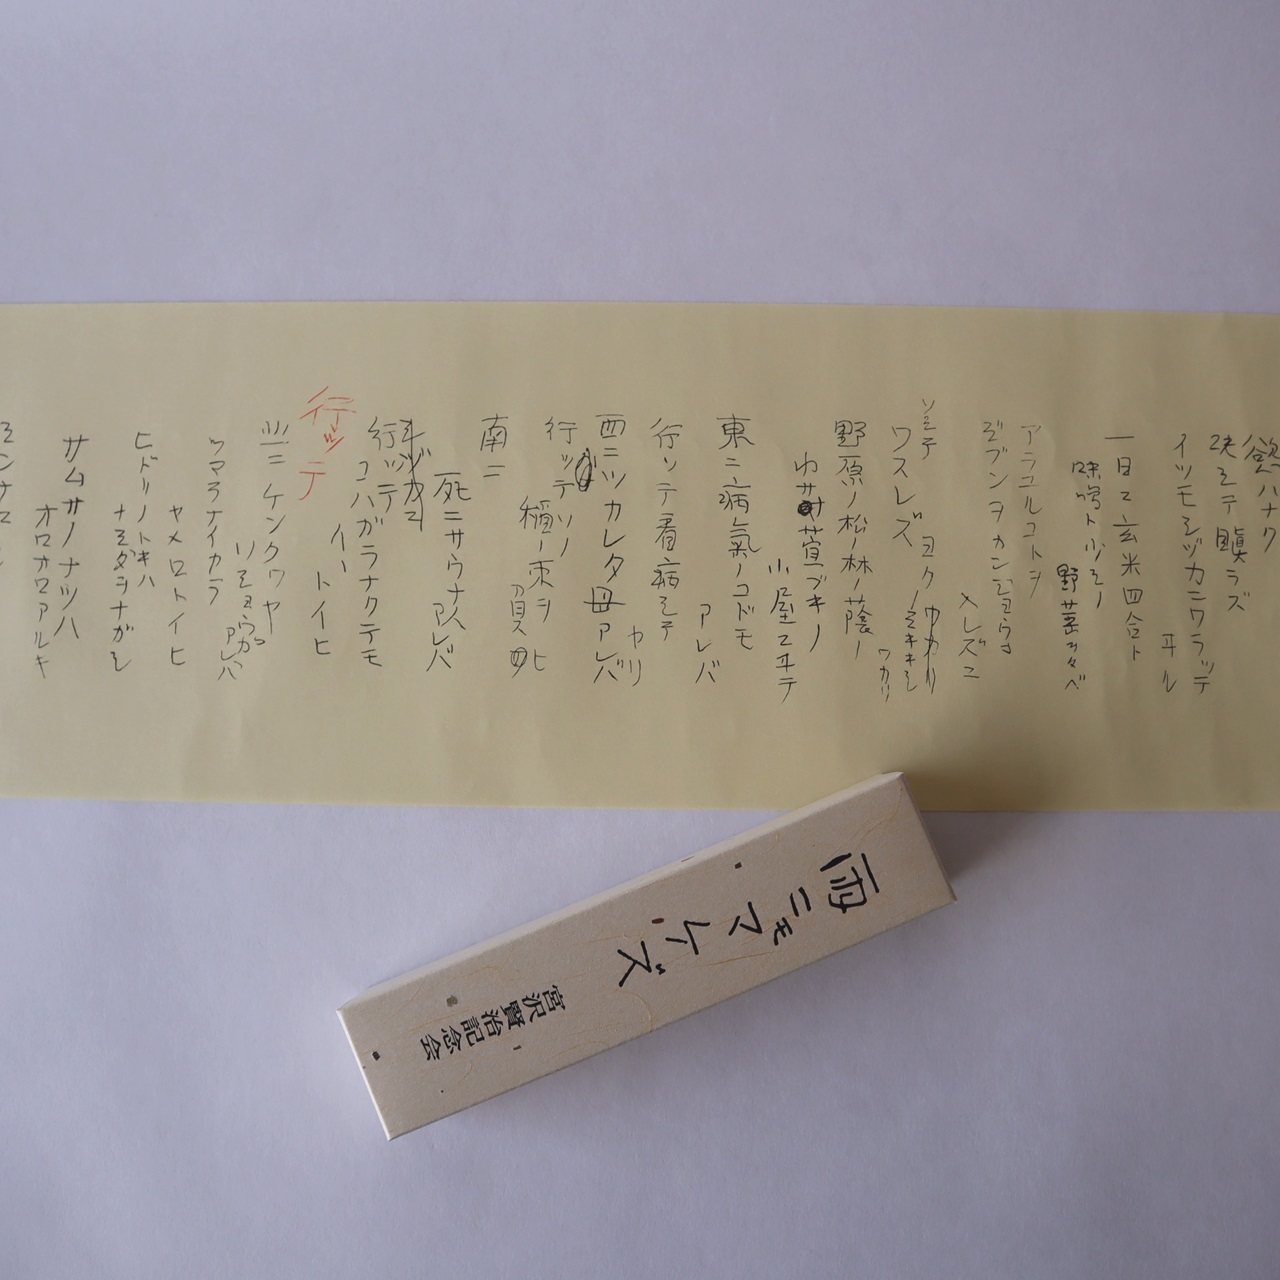 慾ハナク
決シテ瞋ラズ
イツモシヅカニワラッテ
ヰル
一日ニ玄米四合ト
味噌ト少シノ
野菜ヲタベ
アラユルコトヲ
ジブンヲカンジョウニ
入レズニ
ソシテ
ヨクミキキシ
ワカリ
ワスレズ
野原ノ松ノ林ノ蔭ノ
小サナ萓ブキノ
小屋ニヰテ
東ニ病氣ノコドモ
アレバ
行ッテ看病シテ
ヤリ
西ニツカレタ母アレバ
行ッテソノ
稲ノ束ヲ
負ヒ
南ニ
死ニサウナ人
アレバ
行ッテ
コハガラナクテモ
イヽ
トイヒ
北ニケンクヮヤ
ソショウガ
アレバ
行ッテ
ツマラナイカラ
ヤメロトイヒ
ヒドリノトキハ
ナミダヲナガシ
サムサノナツハ
オロオロアルキ
雨ニモマケズ
宮沢賢治記念会